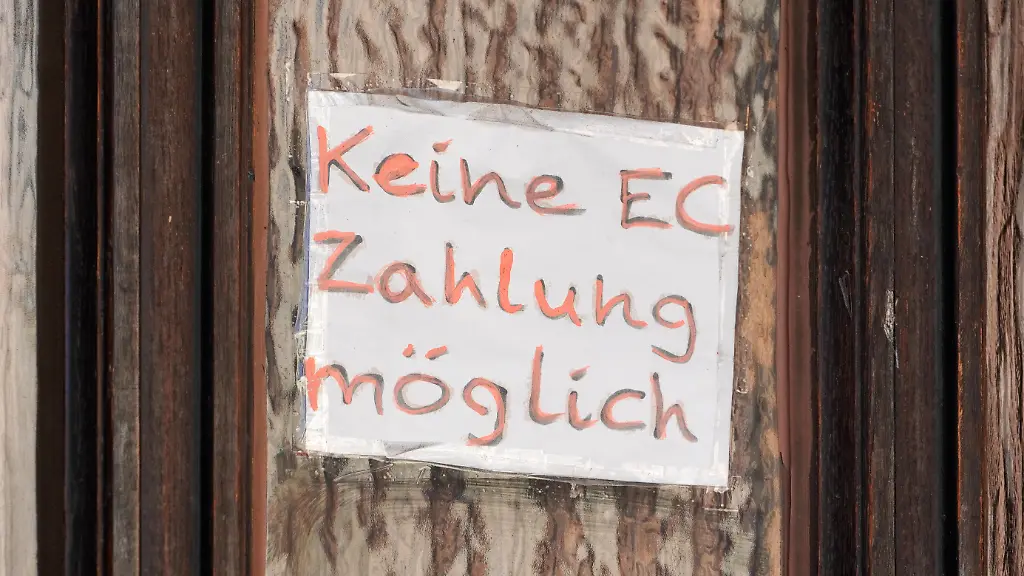 Keine EC
Zahlung
möglich